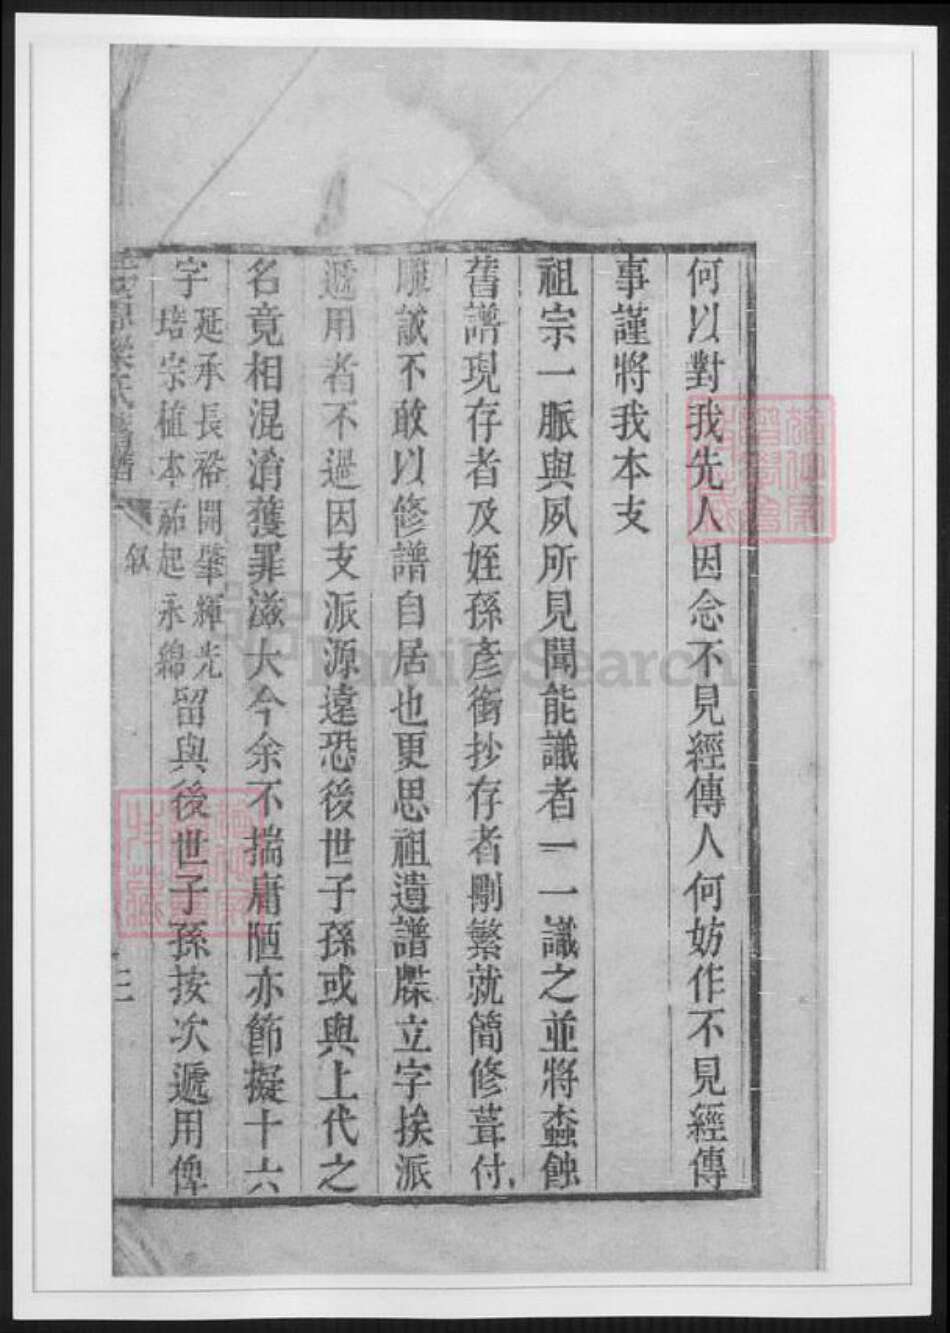 何以對我先人因念不見經傳人何妨作不見經傳
事謹將我本支
祖宗一脈與夙所見聞能識者一一識之並將蠧蝕
舊譜現存者及姪孫彥衡抄存者刪繁就簡修葺付
雕誠不敢以修譜自居也更思祖遺譜牒立字挨派
遞用者不過因支派源遠恐後世子孫或與上代之
名竟相混淆獲罪滋大今余不揣庸陋亦節擬十六
字
延承長裕開肇輝光
培宗植本祐起永綿
留與後世子孫按次遞用俾
氏
譜
叙
三
FamilySearch